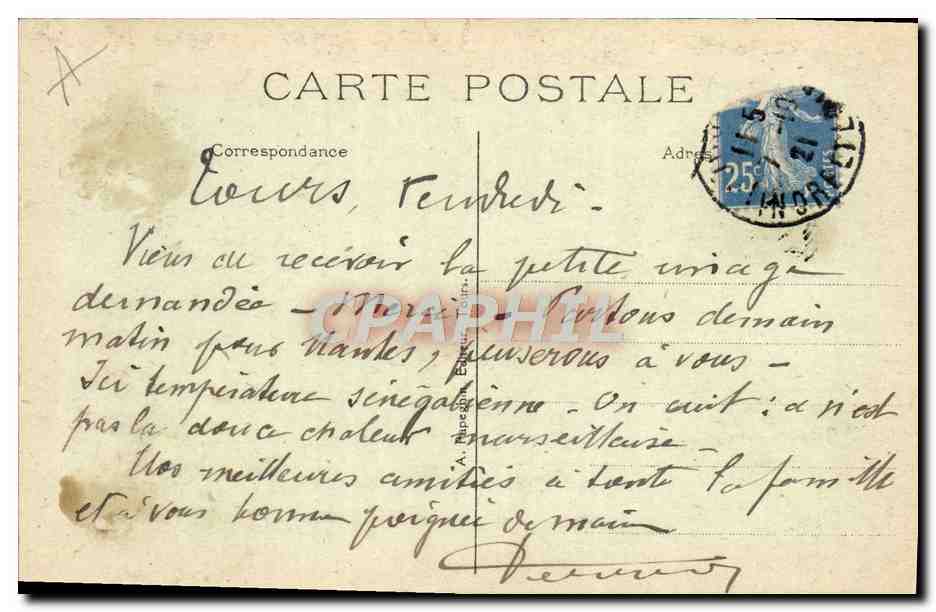 CARTE POSTALE
Correspondance
Adres
25c
11 5
7 - 10
21
INDRE
Tours, Vendredi -
Viens de recevoir la petite image
demandée - Merci - Partons demain
matin pour Nantes, penserons à vous -
Ici température sénégalienne - On cuit : ce n'est
pas la douce chaleur marseillaise -
Nos meilleures amitiés à toute la famille
et à vous bonne poignée de main
A. Papeghin, Editeur, Tours.
CPAPHIL